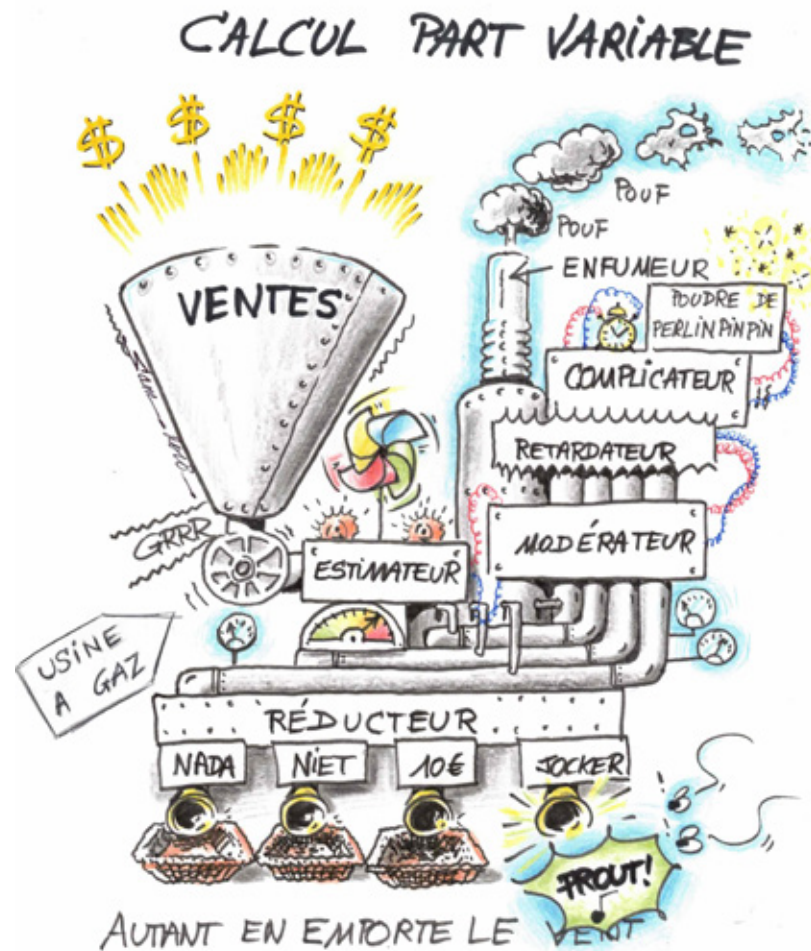 CALCUL PART VARIABLE
$ $ $ $
POUF
POUF
ENFUMEUR
VENTES
POUDRE DE
PERLINPINPIN
COMPLICATEUR
RETARDATEUR
GRRR
MODÉRATEUR
ESTIMATEUR
USINE
A GAZ
RÉDUCTEUR
NADA
NIET
10€
JOCKER
PROUT!
AUTANT EN EMPORTE LE VENT